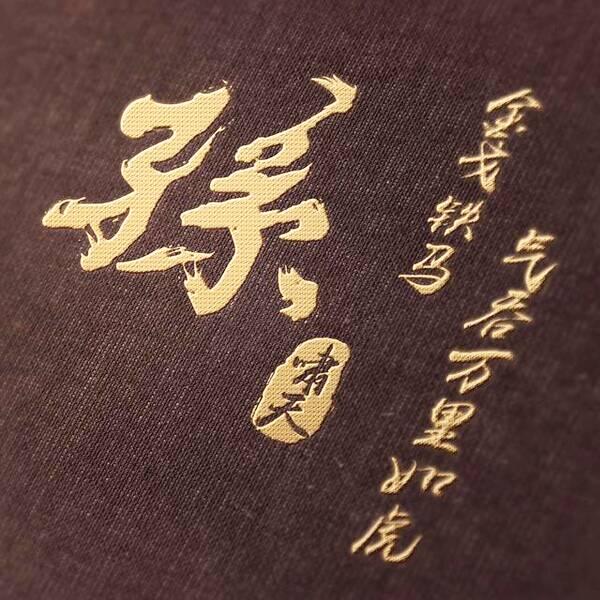 孫
啸天
金戈铁马
气吞万里如虎